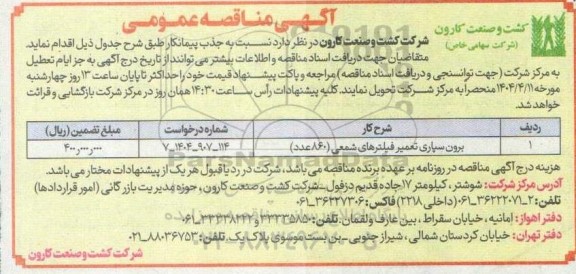 آگهی مناقصه عمومی
کشت و صنعت کارون
(شرکت سهامی خاص)
شرکت کشت و صنعت کارون در نظر دارد نسبت به جذب پیمانکار طبق شرح جدول ذیل اقدام نماید.
متقاضیان جهت دریافت اسناد مناقصه و اطلاعات بیشتر می توانند از تاریخ درج آگهی به جز ایام تعطیل
به مرکز شرکت (جهت توانسنجی و دریافت اسناد مناقصه) مراجعه و پاکت پیشنهاد قیمت خود را حداکثر تا پایان ساعت ۱۳ روز چهارشنبه
مورخه ۱۴۰۴/۴/۱۱ منحصراً به مرکز شرکت تحویل نمایند. کلیه پیشنهادات رأس ساعت ۱۴:۳۰ همان روز در مرکز شرکت بازگشایی و قرائت
خواهد شد.
ردیف شرح کار شماره درخواست مبلغ تضمین (ریال)
۱ برون سپاری تعمیر فیلترهای شمعی (۸۶۰ عدد) ۱۱۴_۹۰۷_۱۴۰۴_۷ ۴۰۰,۰۰۰,۰۰۰
هزینه درج آگهی مناقصه در روزنامه بر عهده برنده مناقصه می باشد، شرکت در رد یا قبول هر یک از پیشنهادات مختار می باشد.
آدرس مرکز شرکت: شوشتر، کیلومتر ۱۷ جاده قدیم دزفول_شرکت کشت و صنعت کارون، حوزه مدیریت بازرگانی (امور قراردادها)
تلفن: ۲_۳۶۲۲۲۰۷۱_۰۶۱ (داخلی ۲۲۱۸) فاکس: ۳۶۲۲۷۳۰۶_۰۶۱
دفتر اهواز: امانیه، خیابان سقراط، بین عارف و لقمان. تلفن: ۳۳۳۳۵۸۵۰ و ۳۳۳۶۸۲۴۲_۰۶۱
دفتر تهران: خیابان کردستان شمالی، شیراز جنوبی_بن بست موسوی پلاک یک. تلفن: ۸۸۰۳۶۷۵۳_۰۲۱
شرکت کشت و صنعت کارون